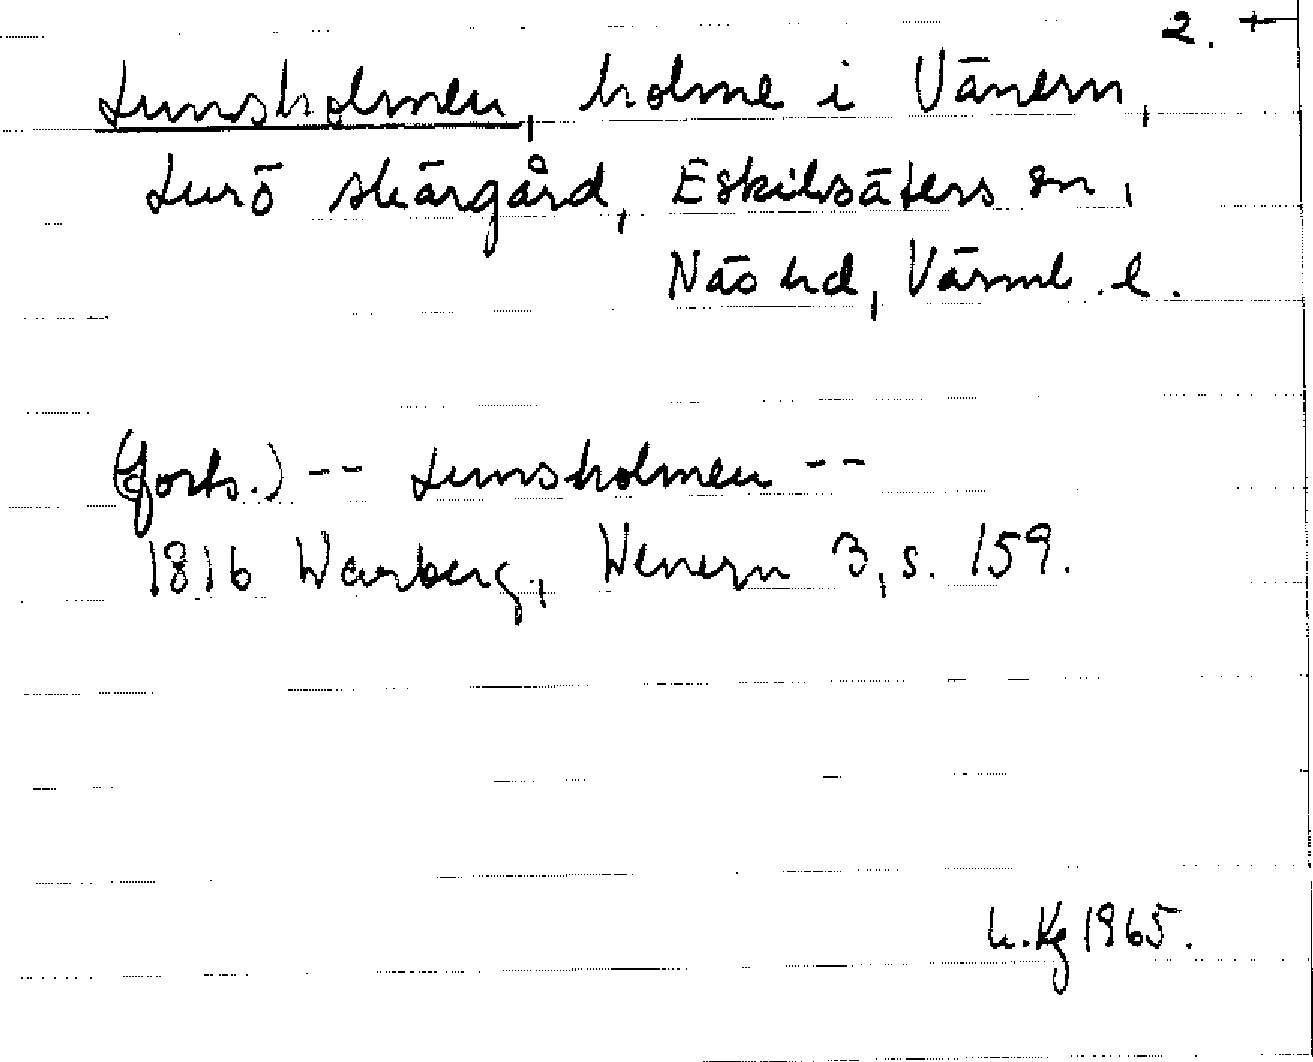 2. +
Lunsholmen, holme i Vänern,
Lurö skärgård, Eskilsäters sn,
Näs hd, Värml. l.
(forts.) -- Lunsholmen --
1816 Warberg, Wenern 3, s. 159.
h. Kg 1965.